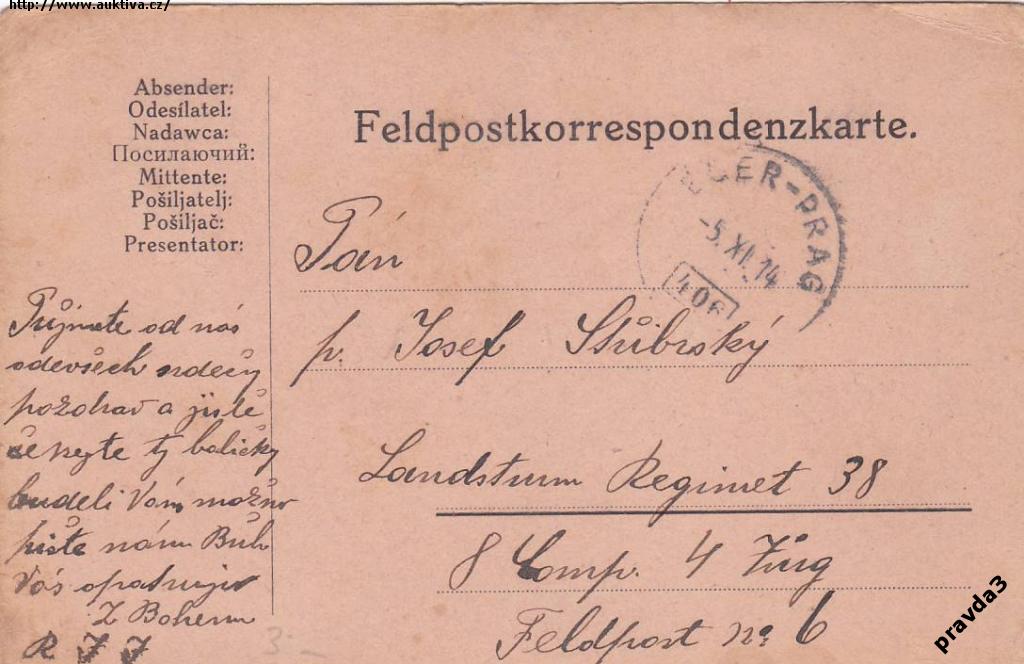 http://www.auktiva.cz/
Absender:
Odesílatel:
Nadawca:
Посилаючий:
Mittente:
Pošiljatelj:
Pošiljač:
Presentator:
Feldpostkorrespondenzkarte.
EGER-PRAG
-5.XI.14
406
Pán
p. Josef Stübrský
Landsturm Regimet 38
8 Comp. 4 Zug
Feldpost no 6
Přijmete od nás
odevšech srdečný
pozdrav a jistě
čekejte ty baličky
budeli Vám možno
pište nám Bůh
Vás opatruj
Z Bohem
R J J
3-
pravda3